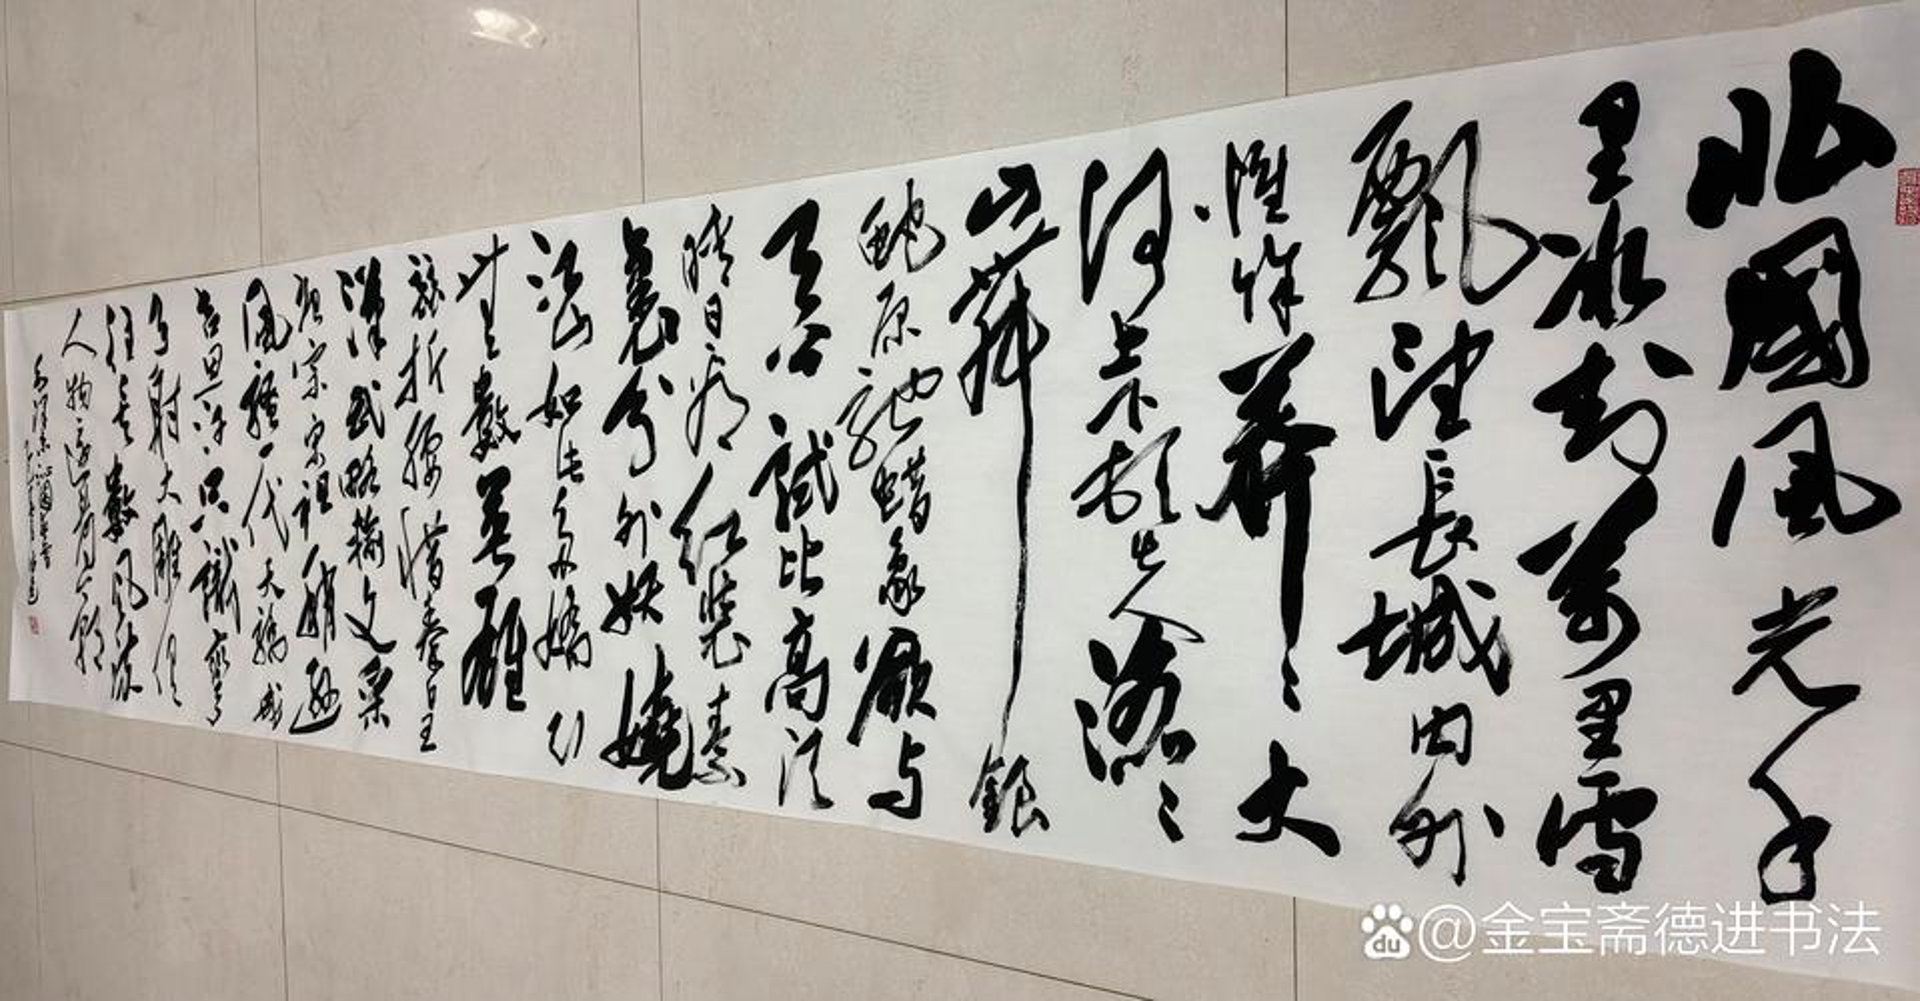 北國風光千
里冰封萬里雪
飄望長城内外
惟餘莽〻大
河上下頓失滔〻
山舞銀
蛇原馳蠟象欲与
天公試比高須
晴日看红裝素
裹分外妖嬈
江山如此多嬌引
無數英雄
競折腰惜秦皇
漢武略輸文采
唐宗宋祖稍遜
風騷一代天驕成
吉思汗只識彎
弓射大雕俱
往矣數風流
人物還看今朝
毛澤東沁園春雪
du @金宝斋德进书法